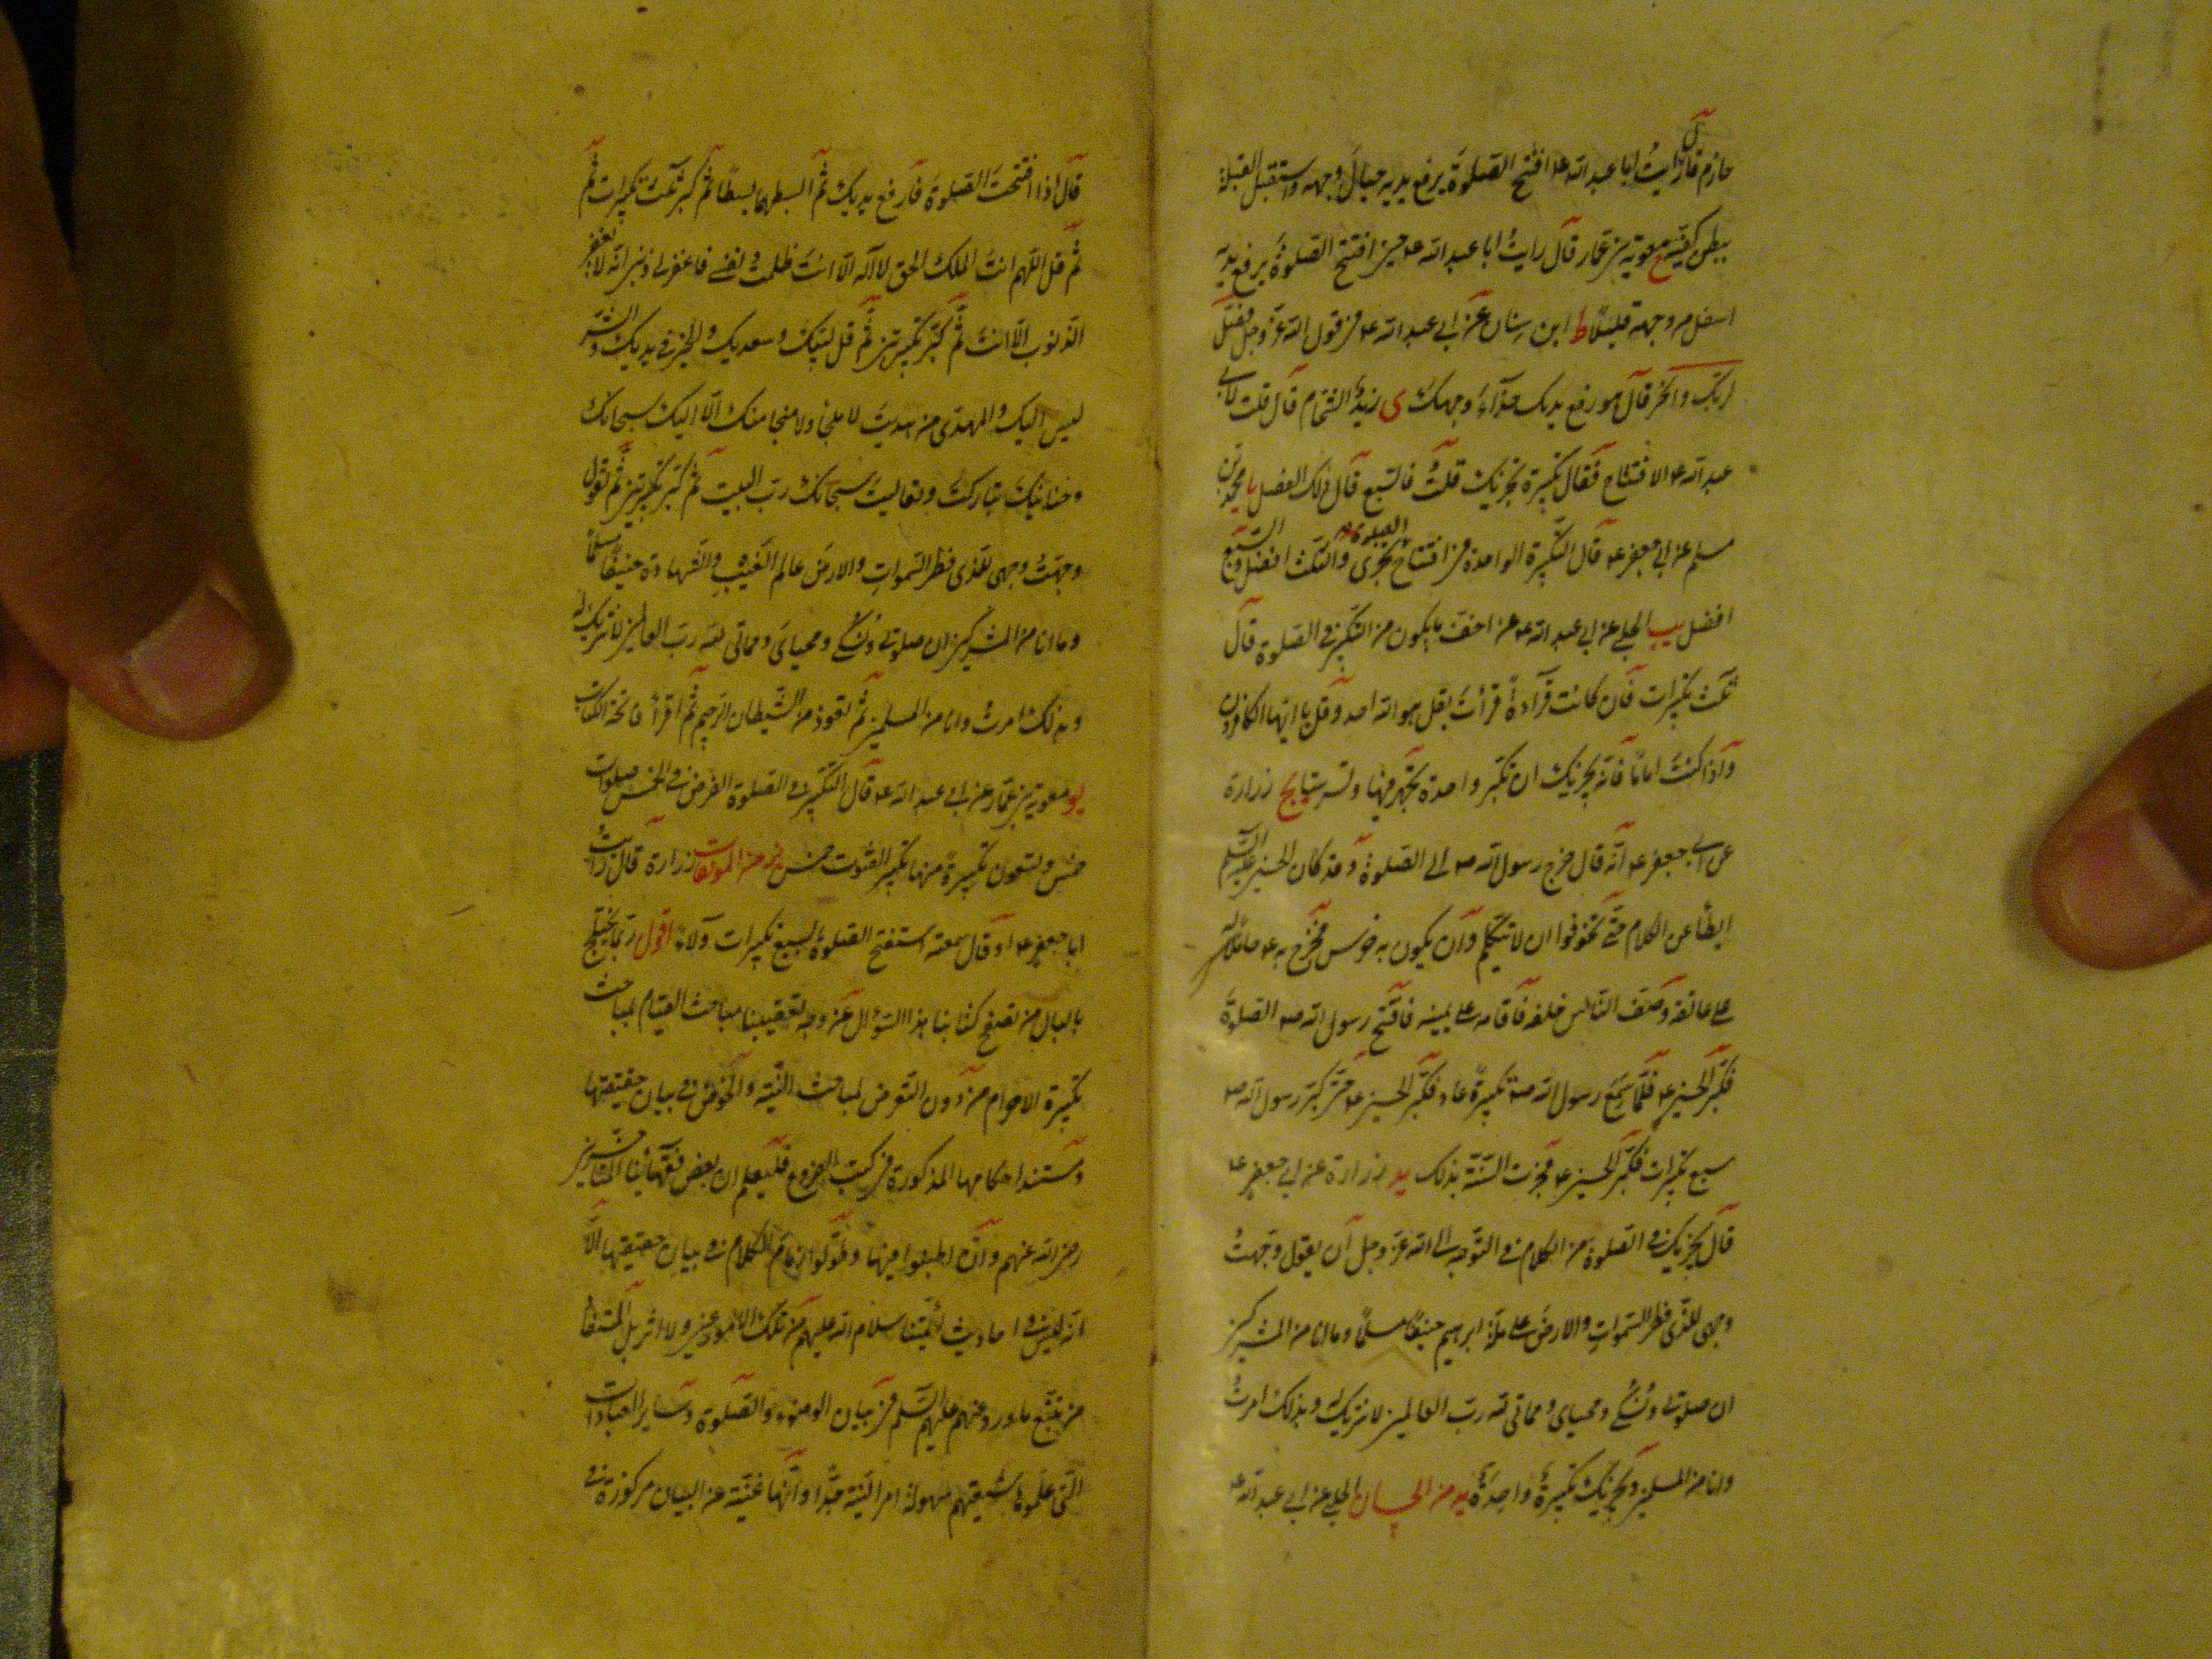 حازم قال رايتُ ابا عبد الله ع‍ افتتح الصّلوةَ يرفع يديه حيالَ وجهه واستقبل القبلة
ببطن كفيّه ح معوية بن عمار قال رايتُ ابا عبد الله ع‍ حين افتتح الصّلوةَ يرفع يديه
اسفل من وجهه قليلاً ط ابن سنان عن ابي عبد الله ع‍ في قول الله عزّ وجل فصلّ
لربّك وانحر قال هو رفع يديك حذآءَ وجهك ى زيدٌ الشحّام قال قلت لابي
عبد الله ع‍ الافتتاح فقال تكبيرة تجزيك قلتُ فالسّبع قال ذلك الفضل يا محمد بن
مسلم عن ابي جعفر ع‍ قال التكبيرة الواحدة في افتتاح الصلوة تجزى والثلث افضل والسّبع
افضل يب الحلبي عن ابي عبد الله ع‍ عن اخفّ ما يكون من التكبير في الصّلوة قال
ثلث تكبيرات فان كانت قرآءةً قرأتَ بقل هو الله احد وقل يا ايّها الكافرون
واذا كنت اماماً فانّه يجزيك ان تكبّر واحدة تجهر فيها وتسرّ ستّا يج زرارة
عن ابي جعفر ع‍ انّه قال خرج رسول الله ص‍ الى الصّلوة وقد كان الحسين عليه السّلم
ابطأ عن الكلام حتّى تخوّفوا ان لا يتكلّم وان يكون به خرس فخرج به ع‍ حامله
على عاتقه وصفّ النّاس خلفه فاقامه على يمينه فافتتح رسول الله ص‍ الصّلوةَ
فكبّر الحسين ع‍ فلمّا سمع رسول الله ص‍ تكبيرةً عاد فكبّر الحسين ع‍ حتّى كبّر رسول الله ص‍
سبع تكبيرات فكبّر الحسين ع‍ فجرت السّنّة بذلك يد زرارة عن ابي جعفر ع‍
قال يجزيك في الصّلوة من الكلام في التّوجه الى الله عزّ وجل ان يقول وجّهتُ
وجهى للذى فطر السّموات والارضَ على ملّة ابرهيم حنيفاً مسلماً وما انا من المشركين
ان صلوتي ونُسُكي ومحياى ومماتى لله ربّ العالمين لا شريك له وبذلك امرتُ
وانا من المسلمين ويجزيك تكبيرةٌ واحدةٌ يه من الحسان الحلبي عن ابي عبد الله ع‍
قال اذا افتتحتَ الصّلوةَ فارفع يديك ثم ابسطهما بسطاً ثم كبّر ثلث تكبيرات ثم
ثم قل اللّهم انتَ الملك الحق لا اله الاّ انتَ ظلمتُ نفسى فاغفر لى ذنبى انّه لا يغفر
الذّنوب الاّ انت ثم كبّر تكبيرتين ثم قل لبّيك وسعديك والخير في يديك والشّر
ليس اليك والمهدى من هديتَ لا ملجأ ولا منجا منك الاّ اليك سبحانك
وحنانيك تباركتَ وتعاليتَ سبحانك ربّ البيت ثم كبّر تكبيرتين ثم تقول
وجهّتُ وجهى للذى فطر السّمواتِ والارضَ عالم الغيبِ والشّهادة حنيفاً مسلماً
وما انا من المشركين ان صلوتى ونُسُكى ومحياىَ ومماتى لله ربّ العالمين لا شريك له
وبذلك امرتُ وانا من المسلمين ثم تعوّذ من الشّيطان الرّجيم ثم اقرأ فاتحة الكتاب
يو معوية بن عمّار عن ابى عبد الله ع‍ قال التّكبير في الصّلوة الفرض في الخمس صلوات
خمس وتسعون تكبيرةً منها تكبير القنوت خمس يز من الموثقات زرارة قال رايتُ
ابا جعفر ع‍ او قال سمعته استفتح الصّلوةَ بسبع تكبيرات ولاءً اقول ربّما يختلج
بالبال من تصفح كتابنا هذا السّؤال عن وجه تعقيبنا مباحث القيام بمباحث
تكبيرة الاحرام من دون التّعرض لمباحث النّيّة والخوض في بيان حقيقتها
ومستند احكامها المذكورة في كتب الفروع فليعلم ان بعض فقهائنا المتأخرين
رضى الله عنهم وان اطنبوا فيها وطوّلوا زمام الكلام في بيان حقيقتها الاّ
انّه ليس في احاديث ائمّتنا سلام الله عليهم من تلك الامور عين ولا اثر بل المستفاد
من تتبّع ما ورد عنهم عليهم السّلم في بيان الوضوء والصّلوة وساير العبادات
التى علّموها شيعتهم سهولة امر النّيّة جدّا وانّها غنيّة عن البيان مركوزة في